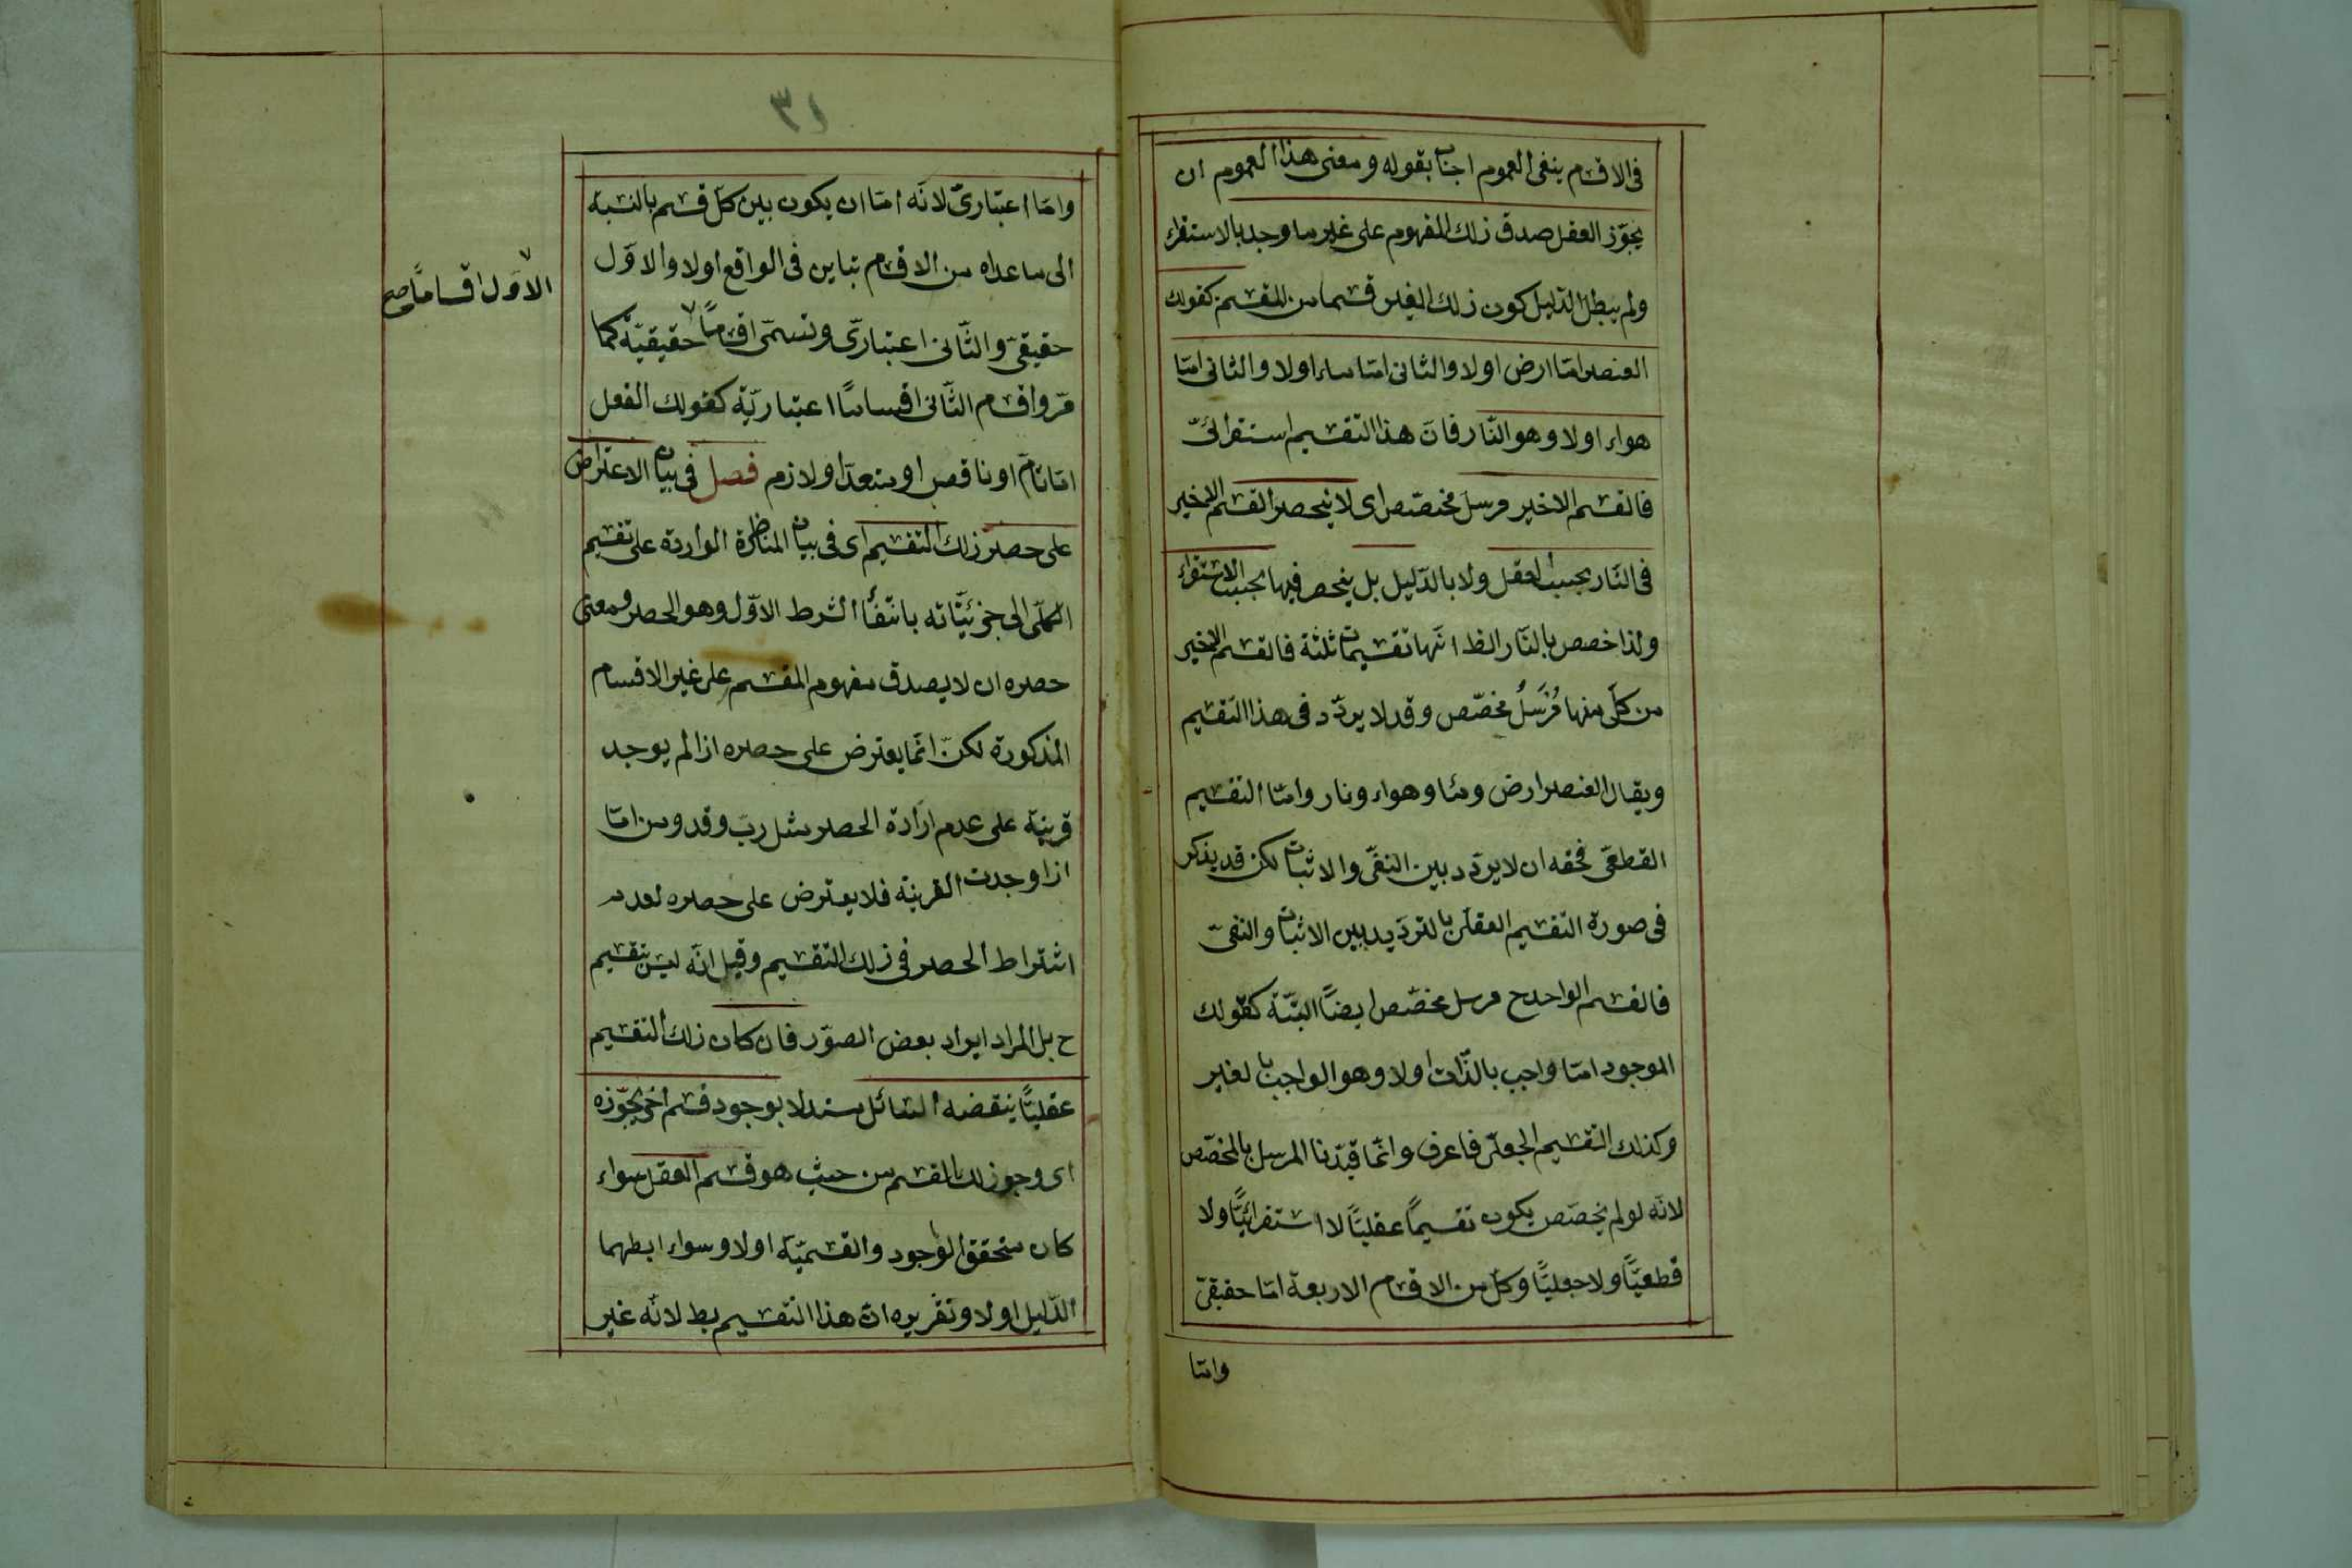 فى الاقسام ينفى العموم اجاب بقوله ومعنى هذا العموم ان
يجوّز العقل صدق ذلك المفهوم على غير ما وجد بالاستقراء
ولم يبطل الدّليل كون ذلك الغير قسما من المقسم كقولك
العنصر امّا ارض اولا والثانى امّا ماء اولا والثانى امّا
هواء اولا وهو النّار فانّ هذا التقسيم استقرائىّ
فالقسم الاخير مرسل مخصّص اى لا ينحصر القسم الاخير
فى النّار بحسب العقل ولا بالدّليل بل ينحصر فيها بحسب الاستقراء
ولذا خصص بالنّار الظ انّها تقسيمات ثلثة فالقسم الاخير
من كلّ منها مُرْسَلٌ مخصّص وقد لا يردّد فى هذا التقسيم
ويقال العنصر ارض وماء وهواء ونار وامّا التقسيم
القطعىّ فحقه ان لا يردّد بين النفىّ والاثبات لكن قد يذكر
فى صورة التّقسيم العقلىّ بالترديد بين الاثبات والنفىّ
فالقسم الواحد ح مرسل مخصّص ايضًا البتّة كقولك
الموجود امّا واجب بالذّات اولا وهو الواجب بالغير
وكذلك التقسيم الجعلىّ فاعرف وانّما قيّدنا المرسل بالمخصّص
لانّه لو لم يخصّص يكون تقسيمًا عقليًّا لا استقرائيًّا ولا
قطعيًّا ولا جعليًّا وكل من الاقسام الاربعة امّا حقيقىّ
وامّا
٣١
وامّا اعتبارىّ لانّه امّا ان يكون بين كلّ قسم بالنسبة
الى ما عداه من الاقسام تباين فى الواقع اولا والاوّل
حقيقىّ والثّانى اعتبارىّ وتسمّى اقسامًا حقيقيّة كما
الاوّل اقسامًا صح
مرّ واقسام الثّانى اقسامًا اعتباريّة كقولك الفعل
امّا تامّ او ناقص او متعدّ او لازم فصل فى بيان الاعتراض
على حصر ذلك التقسيم اى فى بيان المناظرة الواردة على تقسيم
الكلّى الى جزئيّاته بانتفاء الشرط الاوّل وهو الحصر ومعنى
حصره ان لا يصدق مفهوم المقسم على غير الاقسام
المذكورة لكنّ انّما يعترض على حصره اذا لم يوجد
قرينة على عدم ارادة الحصر مثل ربّ وقد ومن امّا
اذا وجدت القرينة فلا يعترض على حصره لعدم
اشتراط الحصر فى ذلك التقسيم وقيل انّه ليس بتقسيم
ح بل المراد ايراد بعض الصوّر فان كان ذلك التقسيم
عقليًّا ينقضه السّائل مستدلا بوجود قسم اخر يجوّزه
اى وجود ذلك القسم من حيث هو قسم العقل سواء
كان متحقق الوجود والقسميّة اولا وسواء ابطلهما
الدّليل اولا وتقريره انّ هذا التّقسيم بط لانّه غير